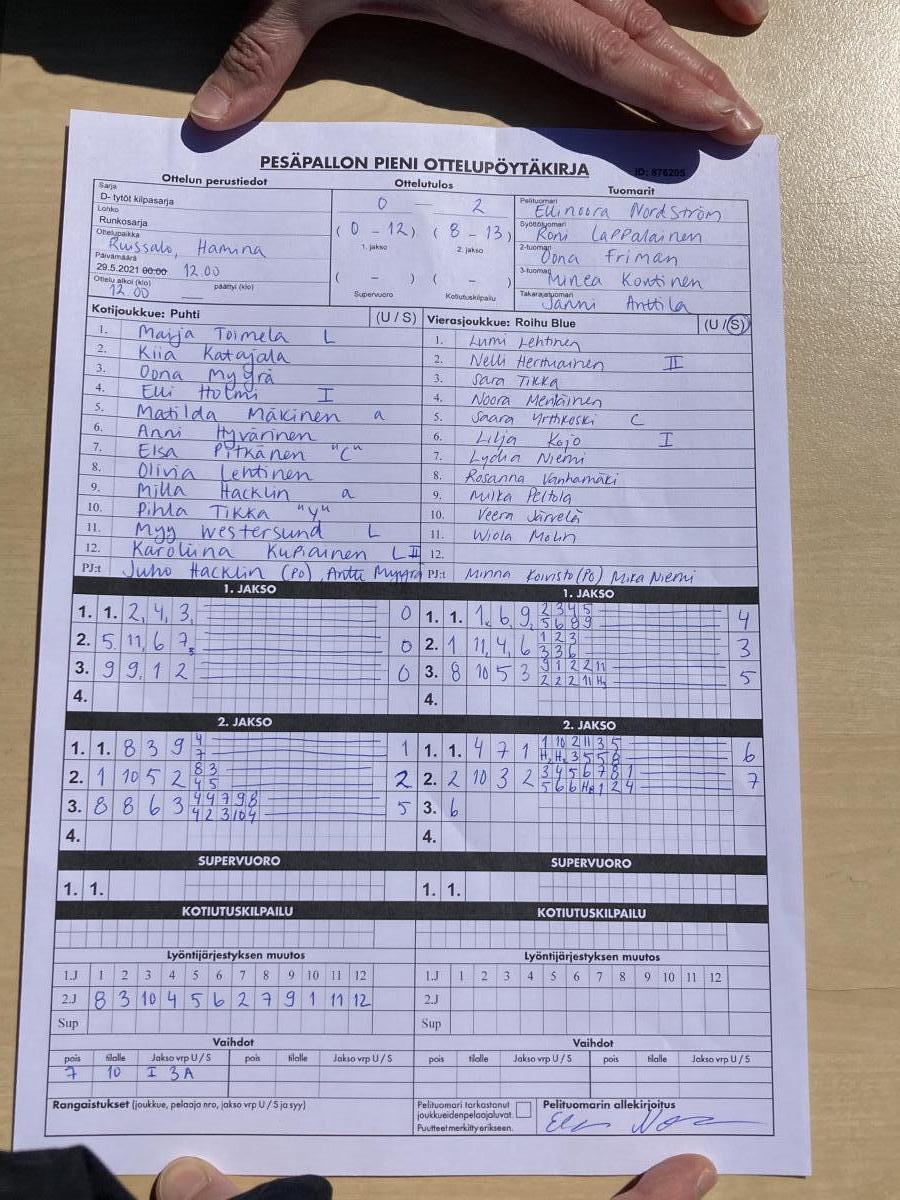 PESÄPALLON PIENI OTTELUPÖYTÄKIRJA ID: 876205
Ottelun perustiedot Ottelutulos Tuomarit
Sarja
D- tytöt kilpasarja
Lohko
Runkosarja
Ottelupaikka
Ruissalo, Hamina
Päivämäärä
29.5.2021 00:00 12.00
Ottelu alkoi (klo) päättyi (klo)
12.00
0 — 2
( 0 - 12 ) ( 8 - 13 )
1. jakso 2. jakso
( - ) ( - )
Supervuoro Kotiutuskilpailu
Pelituomari
Ellinoora Nordström
Syöttötuomari
Roni Lappalainen
2-tuomari
Oona Friman
3-tuomari
Minea Kontinen
Takarajatuomari
Janni Anttila
Kotijoukkue: Puhti (U / S)
1. Maija Toimela L
2. Kiia Katajala
3. Oona Myyrä
4. Elli Holmi I
5. Matilda Mäkinen a
6. Anni Hyvärinen
7. Elsa Pitkänen "C"
8. Olivia Lehtinen
9. Milla Hacklin a
10. Pihla Tikka "y"
11. Myy Westersund L
12. Karoliina Kupiainen L II
PJ:t Juho Hacklin (PO), Antti Myyrä
Vierasjoukkue: Roihu Blue (U / S)
1. Lumi Lehtinen
2. Nelli II
3. Sara Tikka
4. Noora
5. Saara C
6. Lilja Kojo I
7. Lydia Niemi
8. Rosanna Vanhamäki
9. Milka Peltola
10. Veera Järvelä
11. Wiola Molin
12.
PJ:t Minna Koivisto (PO) Mika Niemi
1. JAKSO 1. JAKSO
1. 1. 2, 4, 3, 0
2. 5 11, 6 7, 0
3. 9 9, 1 2 0
4.
1. 1. 1, 6, 9, 2 3 4 5 4
5 6 8 9
2. 1 11, 4, 6 1 2 3 3
3 3 6
3. 8 10 5 3 9 1 2 2 11 5
2 2 2 11 H3
4.
2. JAKSO 2. JAKSO
1. 1. 8 3 9 4 1
7
2. 1 10 5 2 8 3 2
4 5
3. 8 8 6 3 4 4 7 9 8 5
4 2 3 10 4
4.
1. 1. 4 7 1 1 10 2 11 3 5 6
3 5 5 8
2. 2 10 3 2 3 4 5 6 7 8 1 7
5 6 6 1 2 4
3. 6
4.
SUPERVUORO SUPERVUORO
1. 1. 1. 1.
KOTIUTUSKILPAILU KOTIUTUSKILPAILU
Lyöntijärjestyksen muutos Lyöntijärjestyksen muutos
1.J 1 2 3 4 5 6 7 8 9 10 11 12 1.J 1 2 3 4 5 6 7 8 9 10 11 12
2.J 8 3 10 4 5 6 2 7 9 1 11 12 2.J
Sup Sup
Vaihdot Vaihdot
pois tilalle Jakso vrp U / S pois tilalle Jakso vrp U / S pois tilalle Jakso vrp U / S pois tilalle Jakso vrp U / S
7 10 I 3A
Rangaistukset (joukkue, pelaaja nro, jakso vrp U / S ja syy)
Pelituomari tarkastanut
joukkueidenpelaajaluvat.
Puutteet merkitty erikseen.
Pelituomarin allekirjoitus